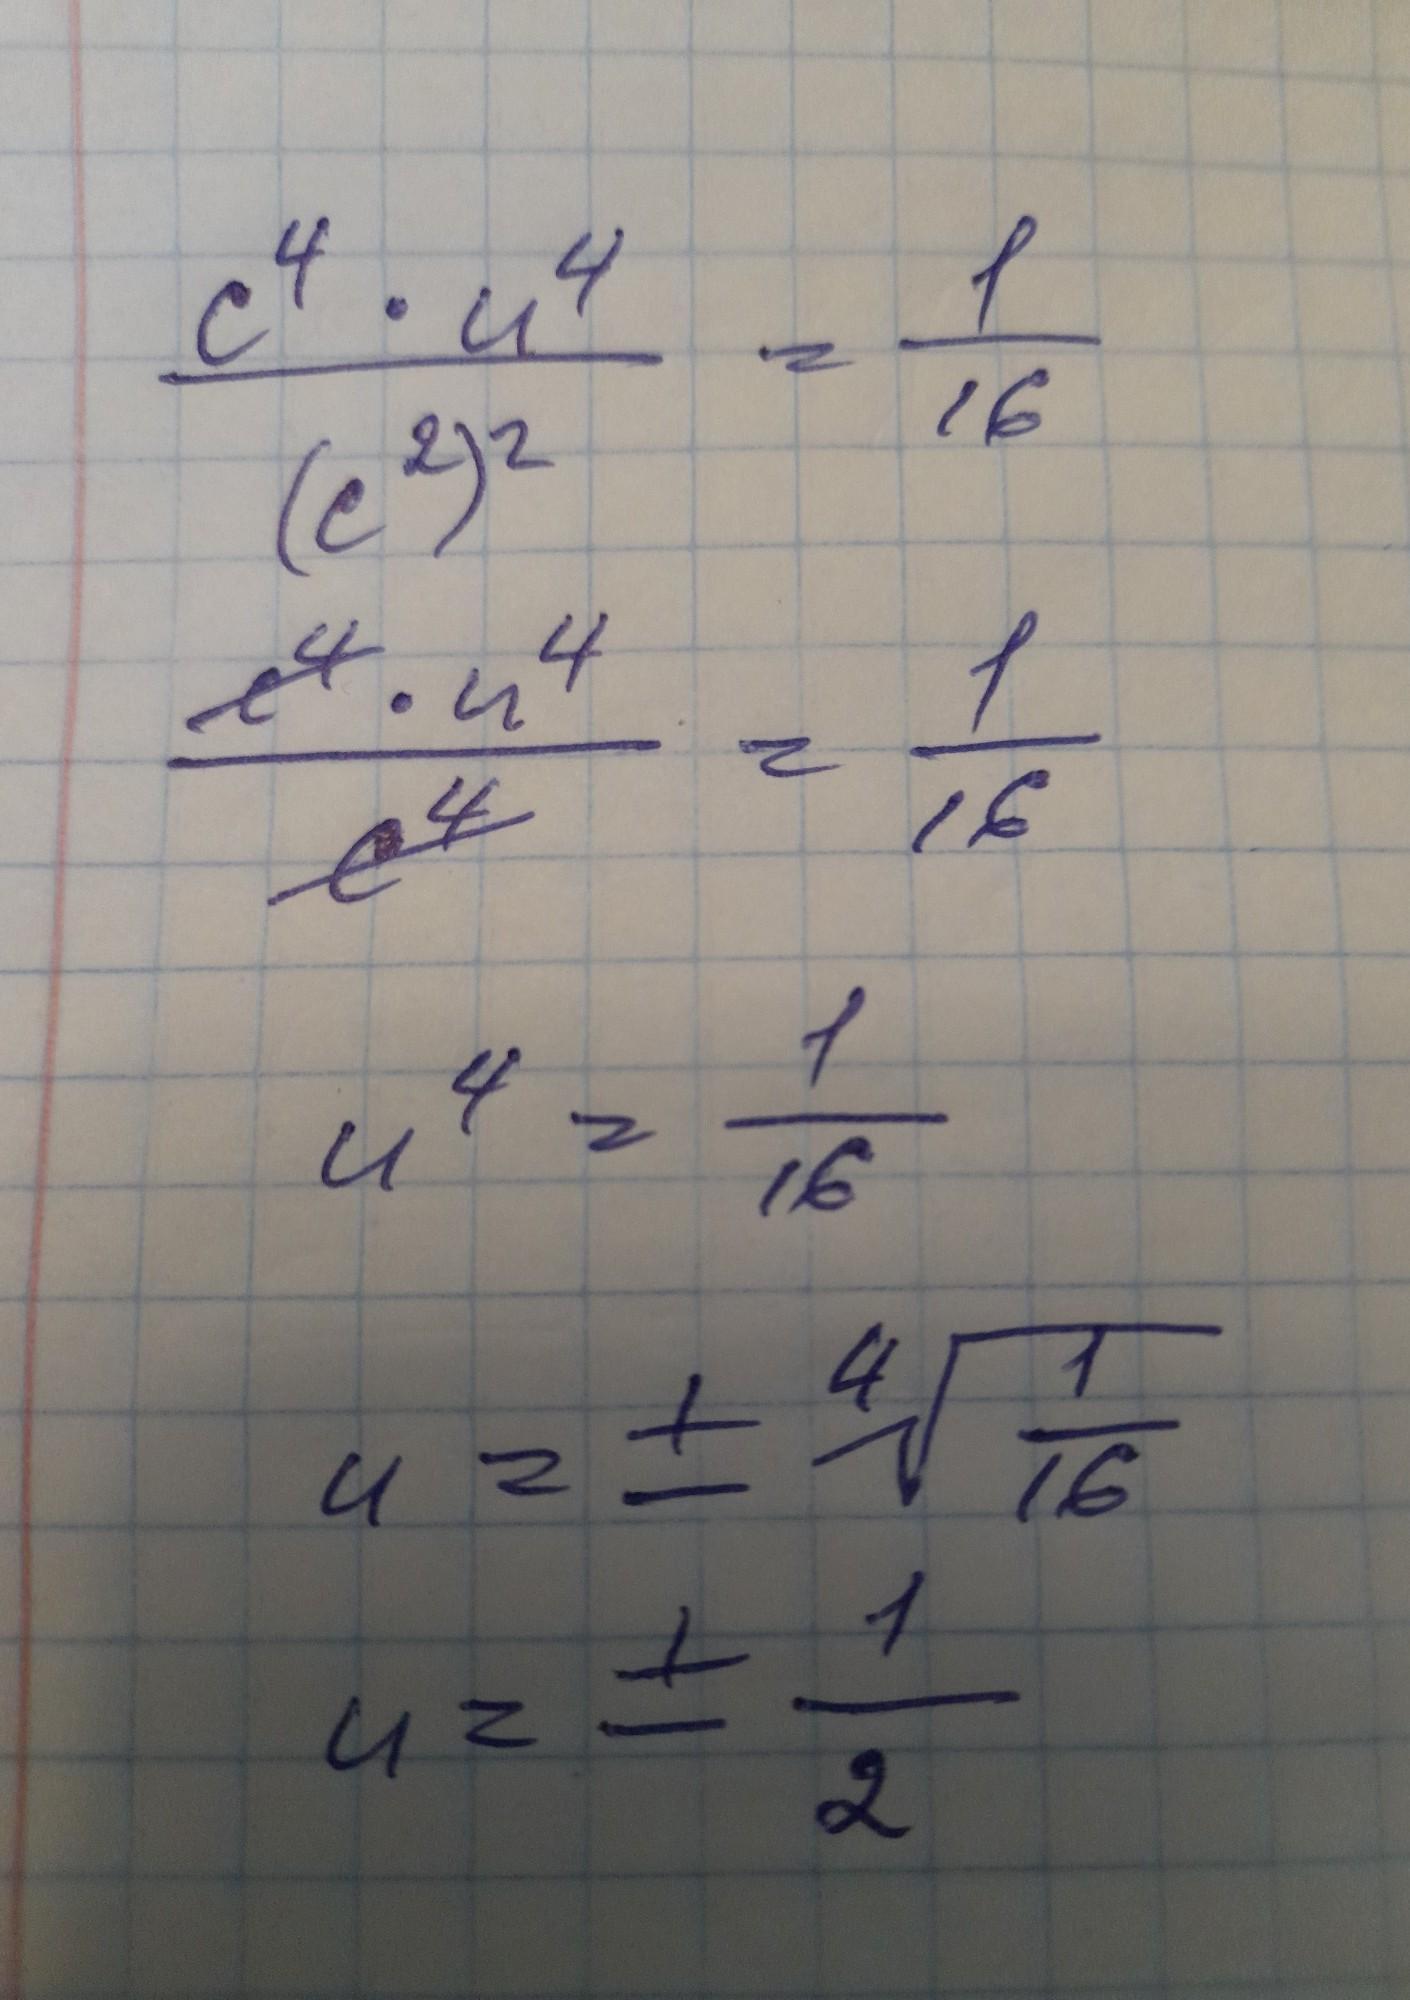 c⁴ · u⁴ / (c²)² = 1/16
c⁴ · u⁴ / c⁴ = 1/16
u⁴ = 1/16
u = ± ⁴√(1/16)
u = ± 1/2